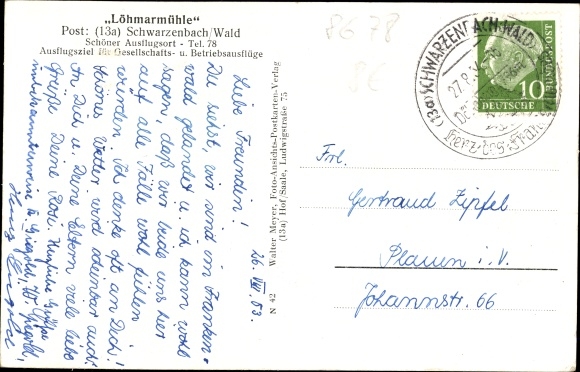 „Löhmarmühle“
Post: (13a) Schwarzenbach/Wald
Schöner Ausflugsort - Tel. 78
Ausflugsziel für Gesellschafts- u. Betriebsausflüge
26. VIII. 53.
Liebe Freundin!
Du siehst, wir sind im Franken-
wald gelandet u. ich kann wohl
sagen, daß wir beide uns hier
auf alle Fälle wohl fühlen
werden. Ich denke oft an Dich!
schönes Wetter wird
An Dich u. Deine Eltern viele liebe
Grüße Deine Herzliche Grüße
N 42 Walter Meyer, Foto-Ansichts-Postkarten-Verlag
(13a) Hof/Saale, Ludwigstraße 75
8678
(13a) SCHWARZENBACH a. WALD
27.8.
10
DEUTSCHE
BUNDESPOST
Frl.
Gertraud Zipfel
Plauen i. V.
Johannstr. 66